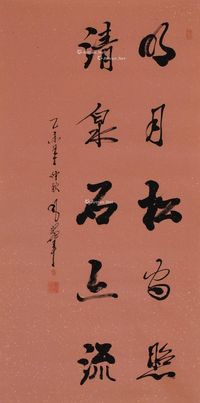 明月松间照
清泉石上流
乙未年